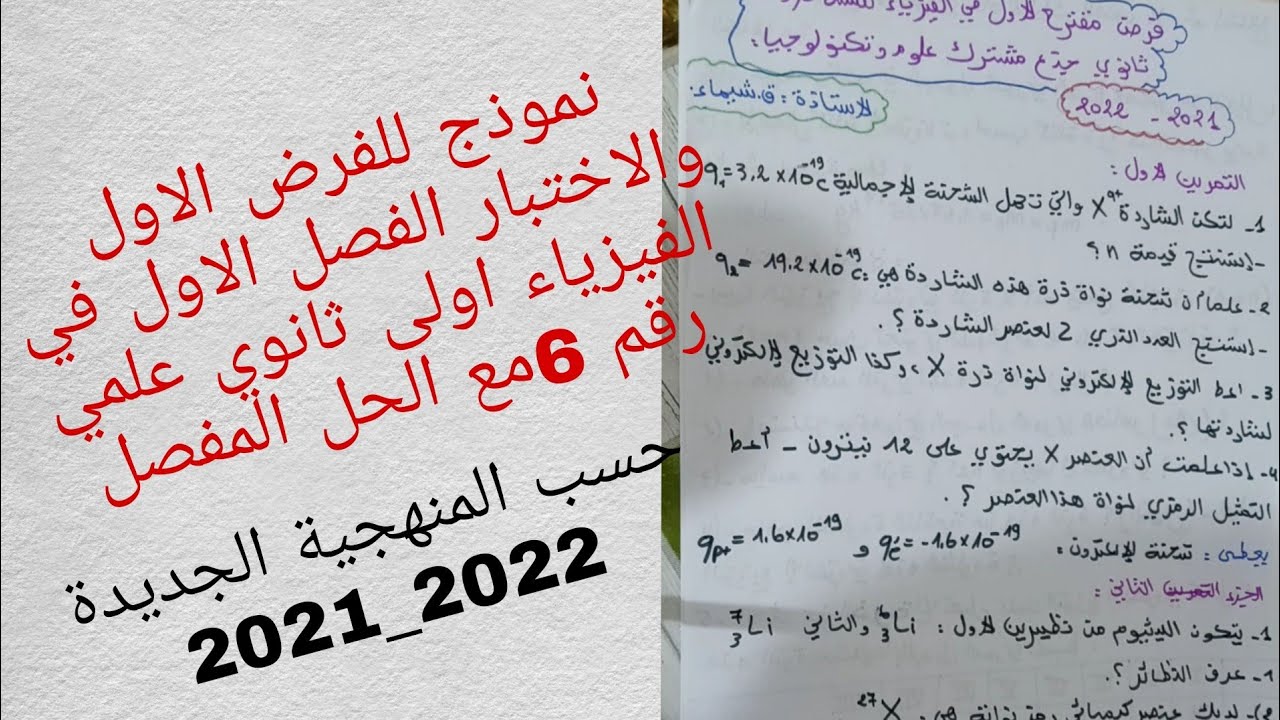 نموذج للفرض الاول
والاختبار الفصل الاول في
الفيزياء اولى ثانوي علمي
رقم 6مع الحل المفصل
حسب المنهجية الجديدة
2021_2022
فرض مقترح للاول في الفيزياء
ثانوي جذع مشترك علوم وتكنولوجيا:
2021 - 2022
الاستاذة : ق.شيماء.
التمرين الاول:
1- لتكن الشاردة Xⁿ⁺ والتي تحمل الشحنة الإجمالية q₁=3,2×10⁻¹⁹c
- إستنتج قيمة n؟
2- علما أن شحنة نواة ذرة هذه الشاردة هي: q₂= 19.2×10⁻¹⁹c
- إستنتج العدد الذري Z لعنصر الشاردة ؟.
3- اعط التوزيع الإلكتروني لنواة ذرة X ، وكذا التوزيع الإلكتروني
لشاردتها ؟.
4- إذا علمت أن العنصر X يحتوي على 12 نيترون - أعط
التمثيل الرمزي لنواة هذا العنصر ؟.
يعطى : شحنة الإلكترون: qe⁻= -1.6×10⁻¹⁹ و qp+= 1.6×10⁻¹⁹
الجزء التمرين الثاني:
1- يتكون الليثيوم من نظيرين الاول : ⁶₃Li والثاني ⁷₃Li
1- عرف النظائر؟.
2)- لديك عنصر كيميائي رمز نواته هي: ²⁷X